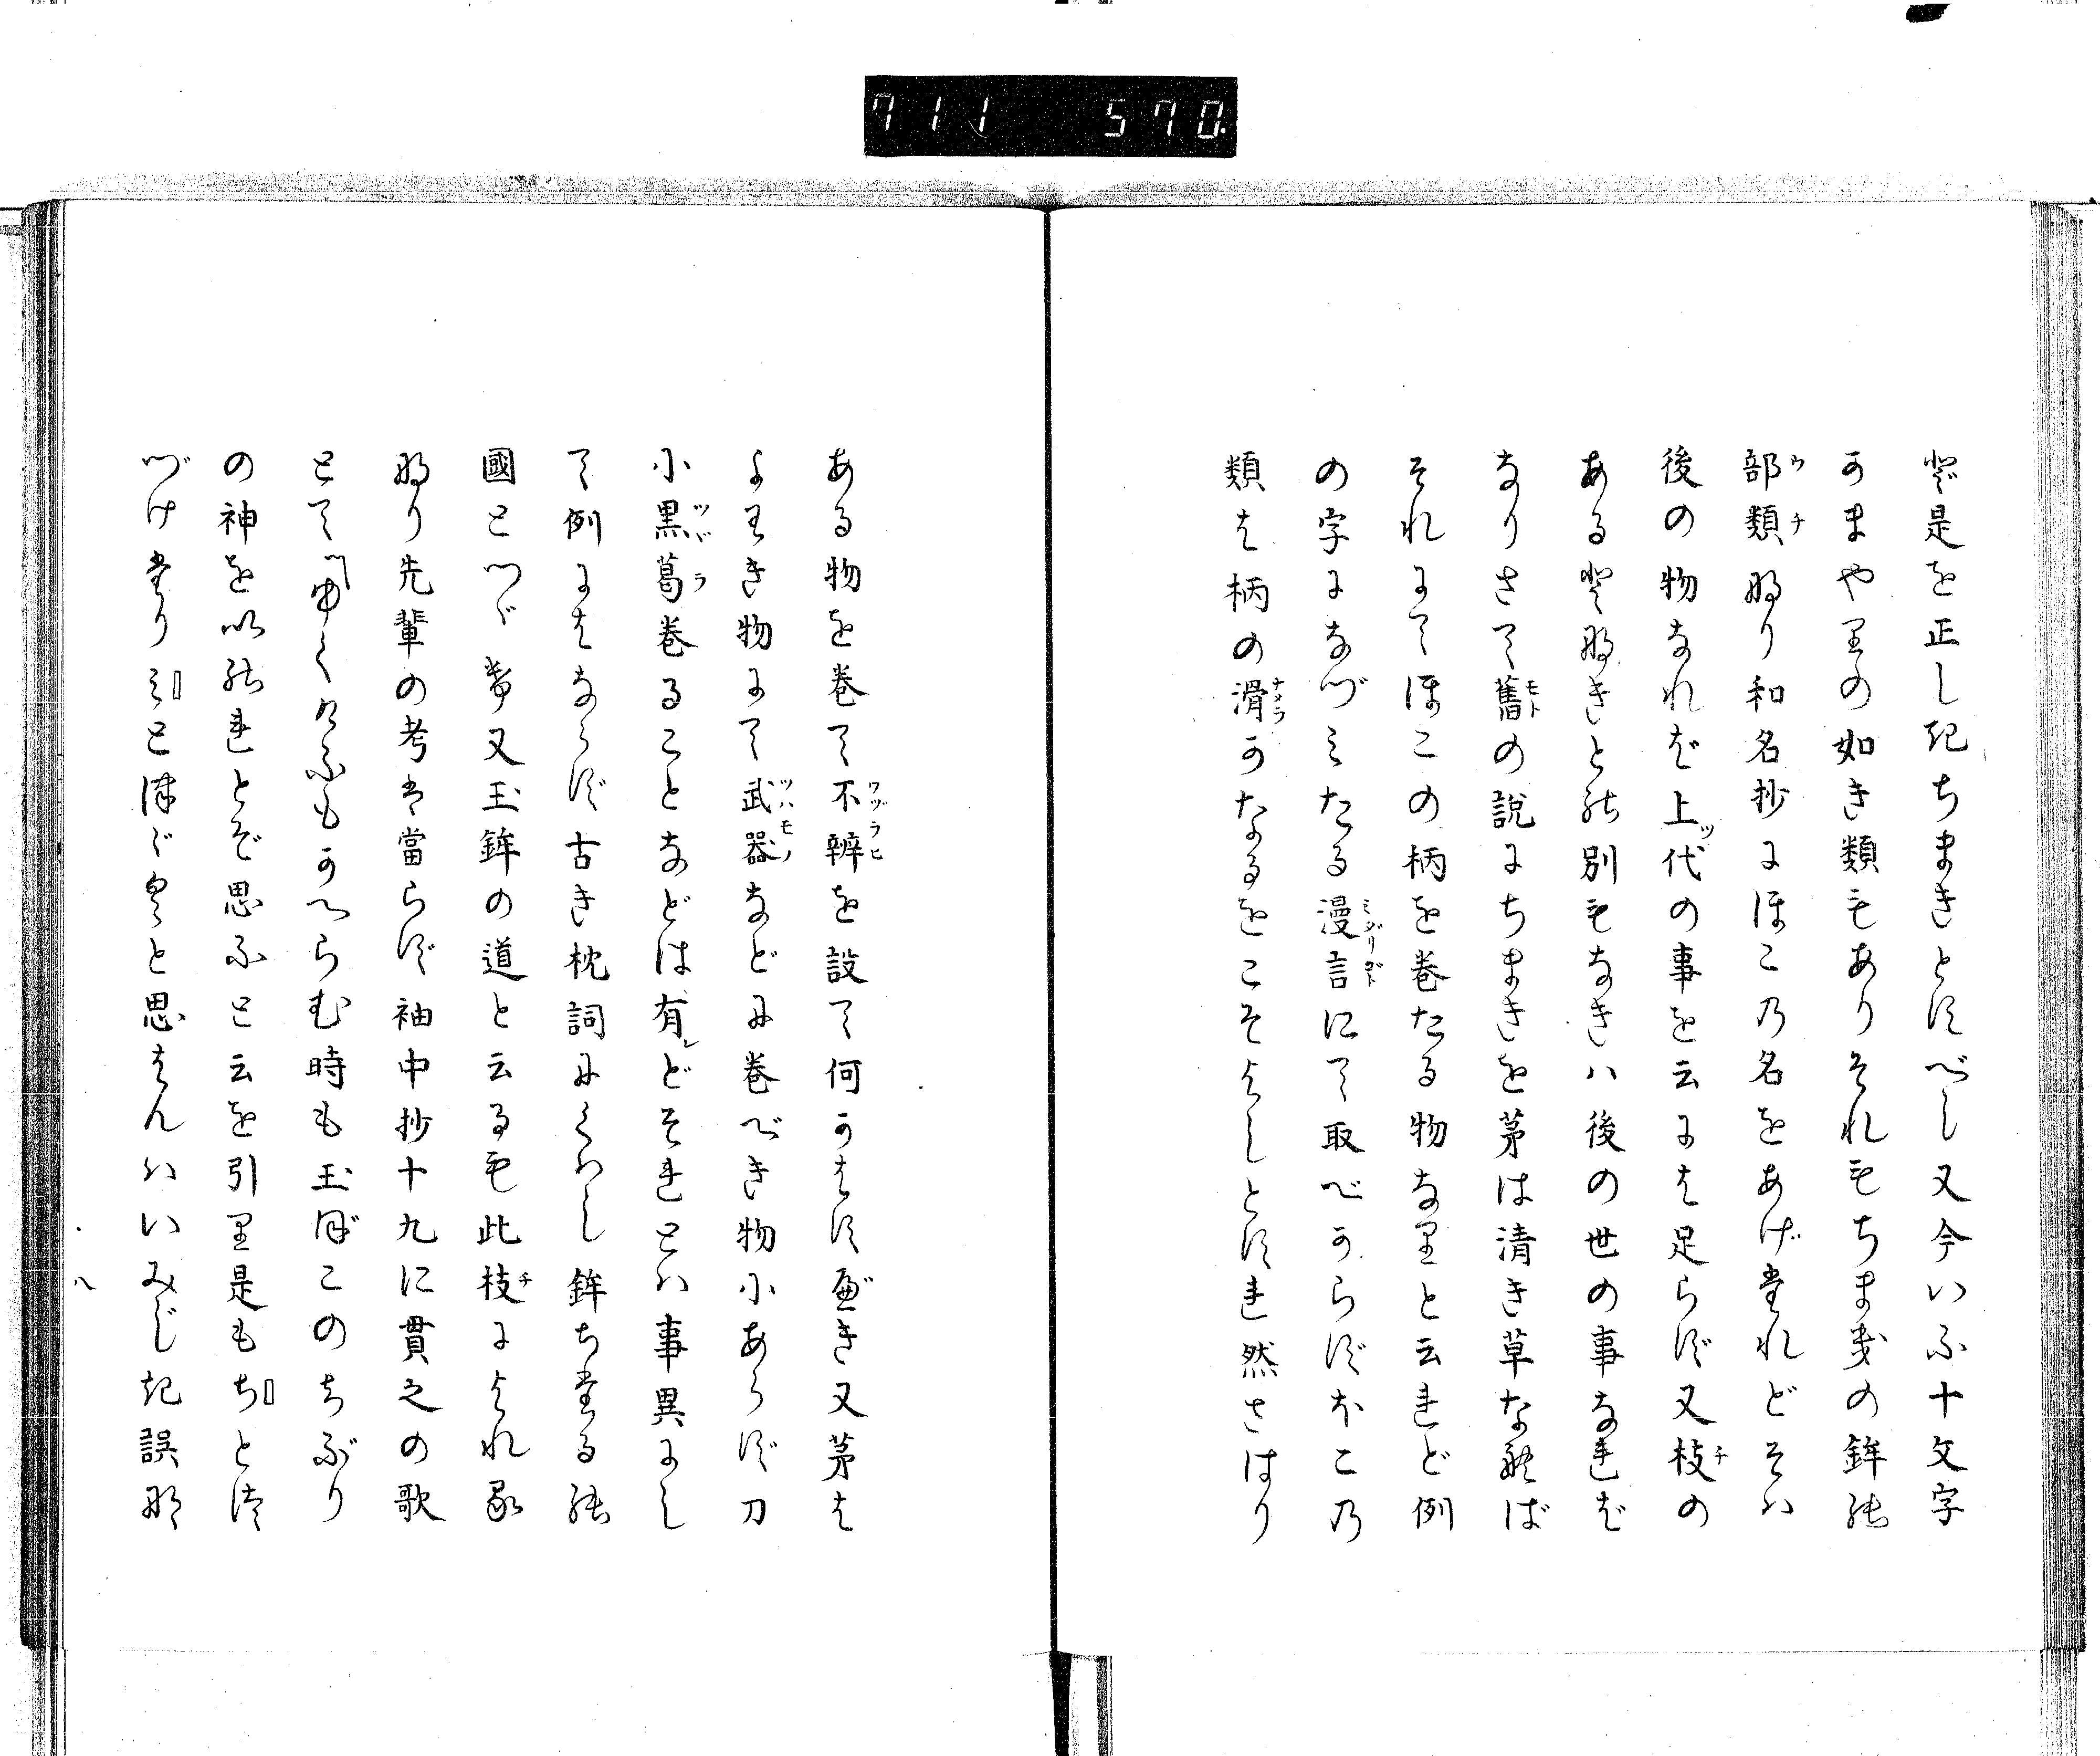 711 570.
ど是を正し記ちまきとすべし又今いふ十文字
かまやりの如き類もありそれもちまきの鉾の
部類なり和名抄にほこの名をあげたれどそハ
後の物なれば上ッ代の事を云には足らず又枝の
あるとなきとの別もなきハ後の世の事なれば
なりさて舊の説にちまきを茅は清き草なれば
それにてほこの柄を巻たる物なりと云れど例
の字になづみたる漫言にて取べからずほこの
類は柄の滑かなるをこそよしとすれ然さはり
ある物を巻て不辨を設て何かはすべき又茅は
よわき物にて武器などに巻べき物にあらず刀
に黒葛巻ることなどは有レどそれとハ事異にし
て例にはならず古き枕詞にくはし鉾ちたる
國とつゞ 又玉鉾の道と云るも此枝によれる
なり先輩の考は當らず袖中抄十九に貫之の歌
とてゆくけふもかへらむ時も玉ぼこのちぶり
の神をいのれとぞ思ふと云を引り是もちとつ
づけたりみとほぐと思はんハいみじき誤な
八